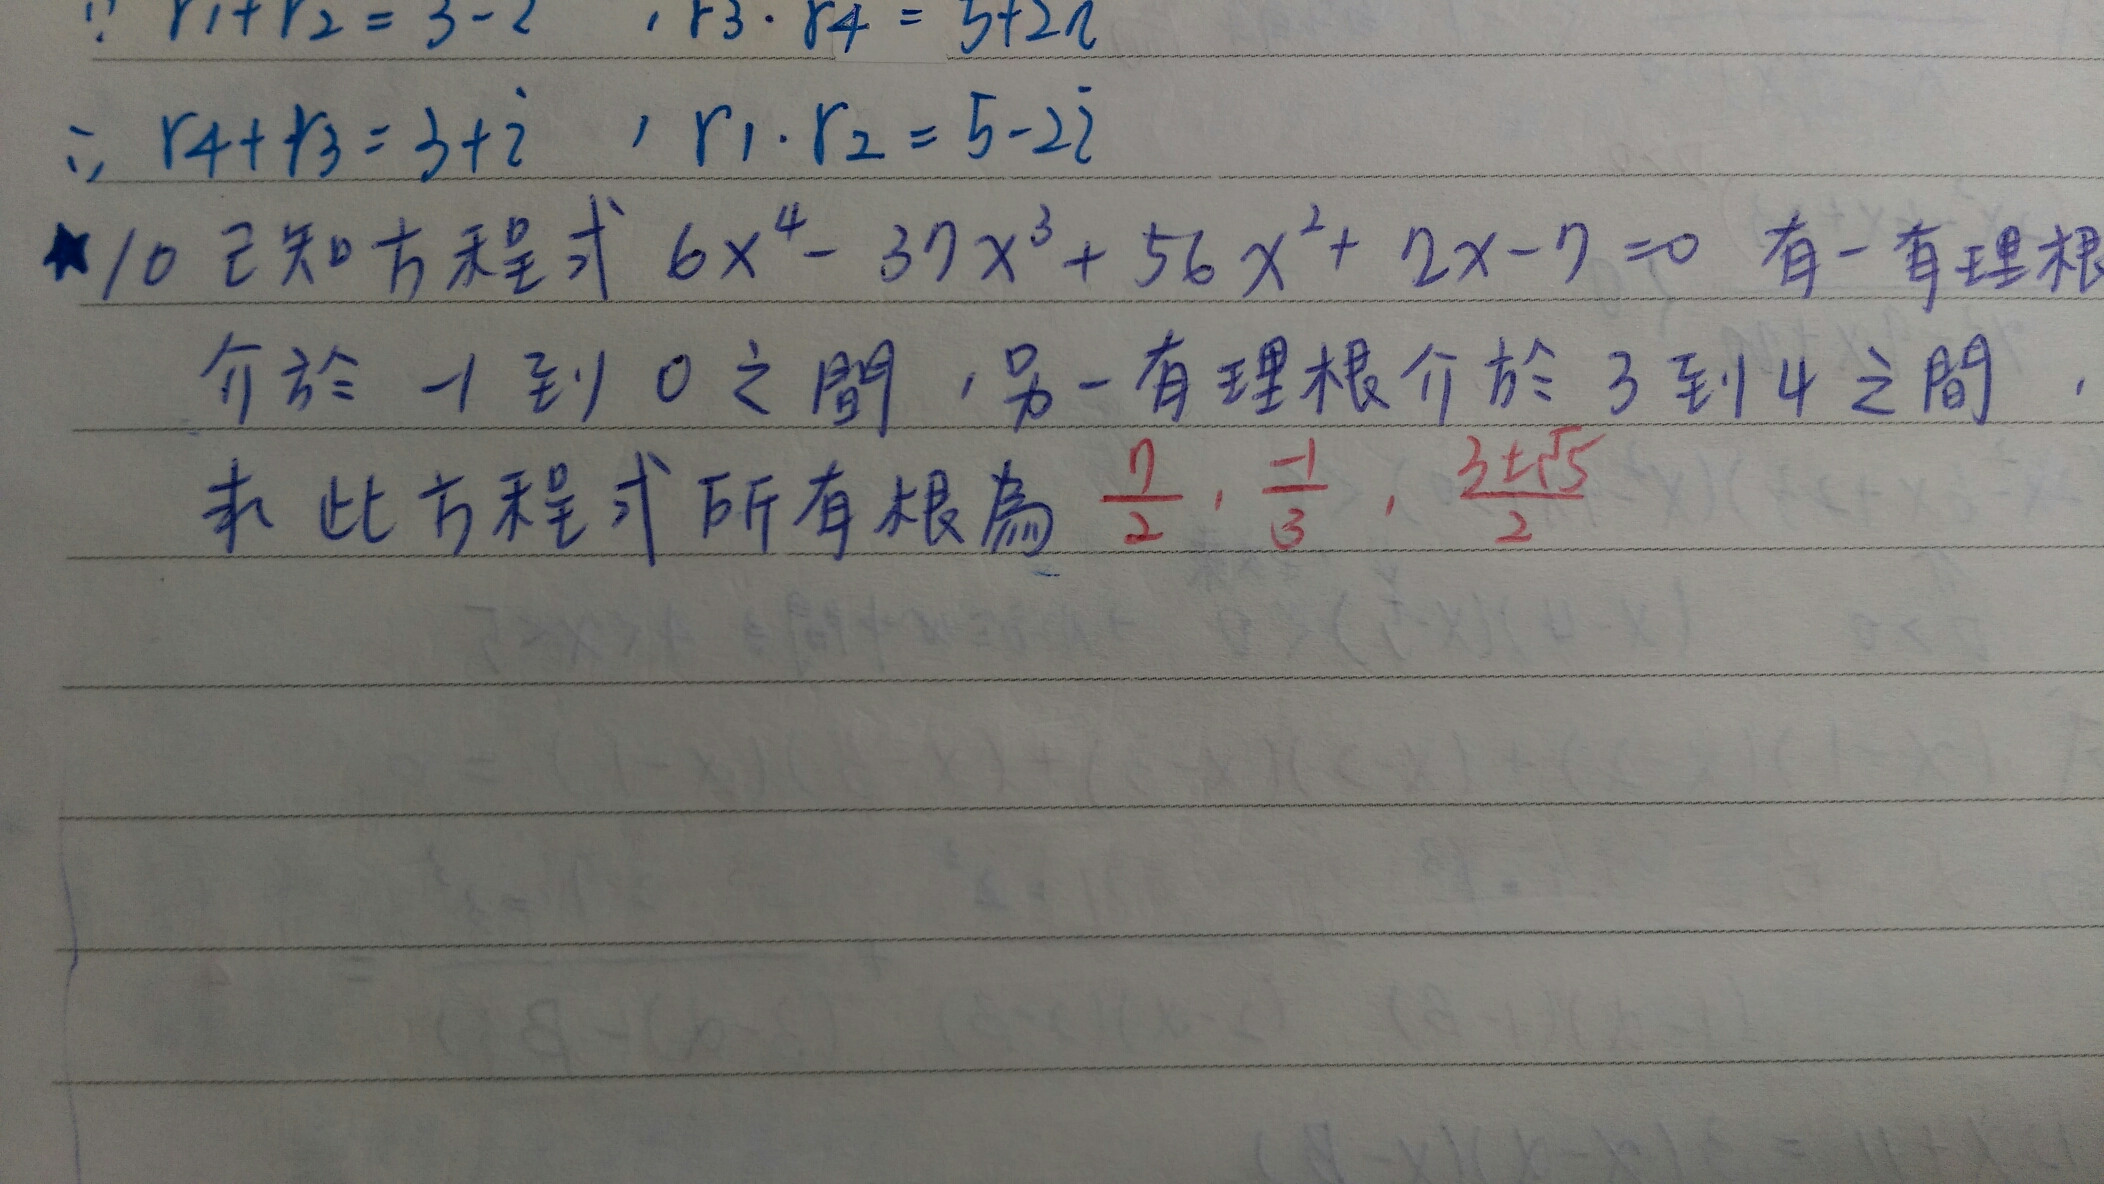 ∵ r1+r2=3-i , r3·r4=5+2i
∴ r4+r3=3+i , r1·r2=5-2i
★10 已知方程式 6x⁴-37x³+56x²+2x-7=0 有一有理根
介於 -1 到 0 之間，另一有理根介於 3 到 4 之間，
求此方程式所有根為 7/2 , -1/3 , 3±√5/2